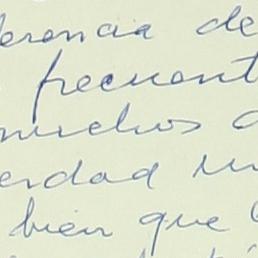 erencia de
frecuent
muchos
erdad un
bien que